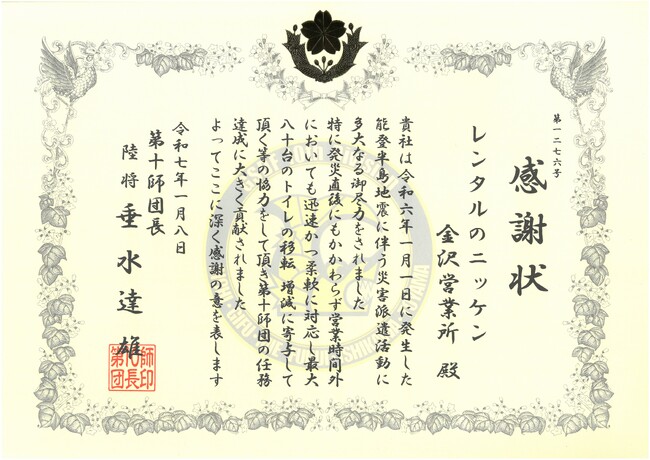 第一二七六号
感謝状
レンタルのニッケン
金沢営業所 殿
貴社は令和六年一月一日に発生した
能登半島地震に伴う災害派遣活動に
多大なる御尽力をされました
特に発災直後にもかかわらず営業時間外
においても迅速かつ柔軟に対応し最大
八十台のトイレの移転、増減に寄与して
頂く等の協力をして頂き第十師団の任務
達成に大きく貢献されました
よってここに深く感謝の意を表します
令和七年一月八日
第十師団長
陸将 垂水達雄
第十師団長印